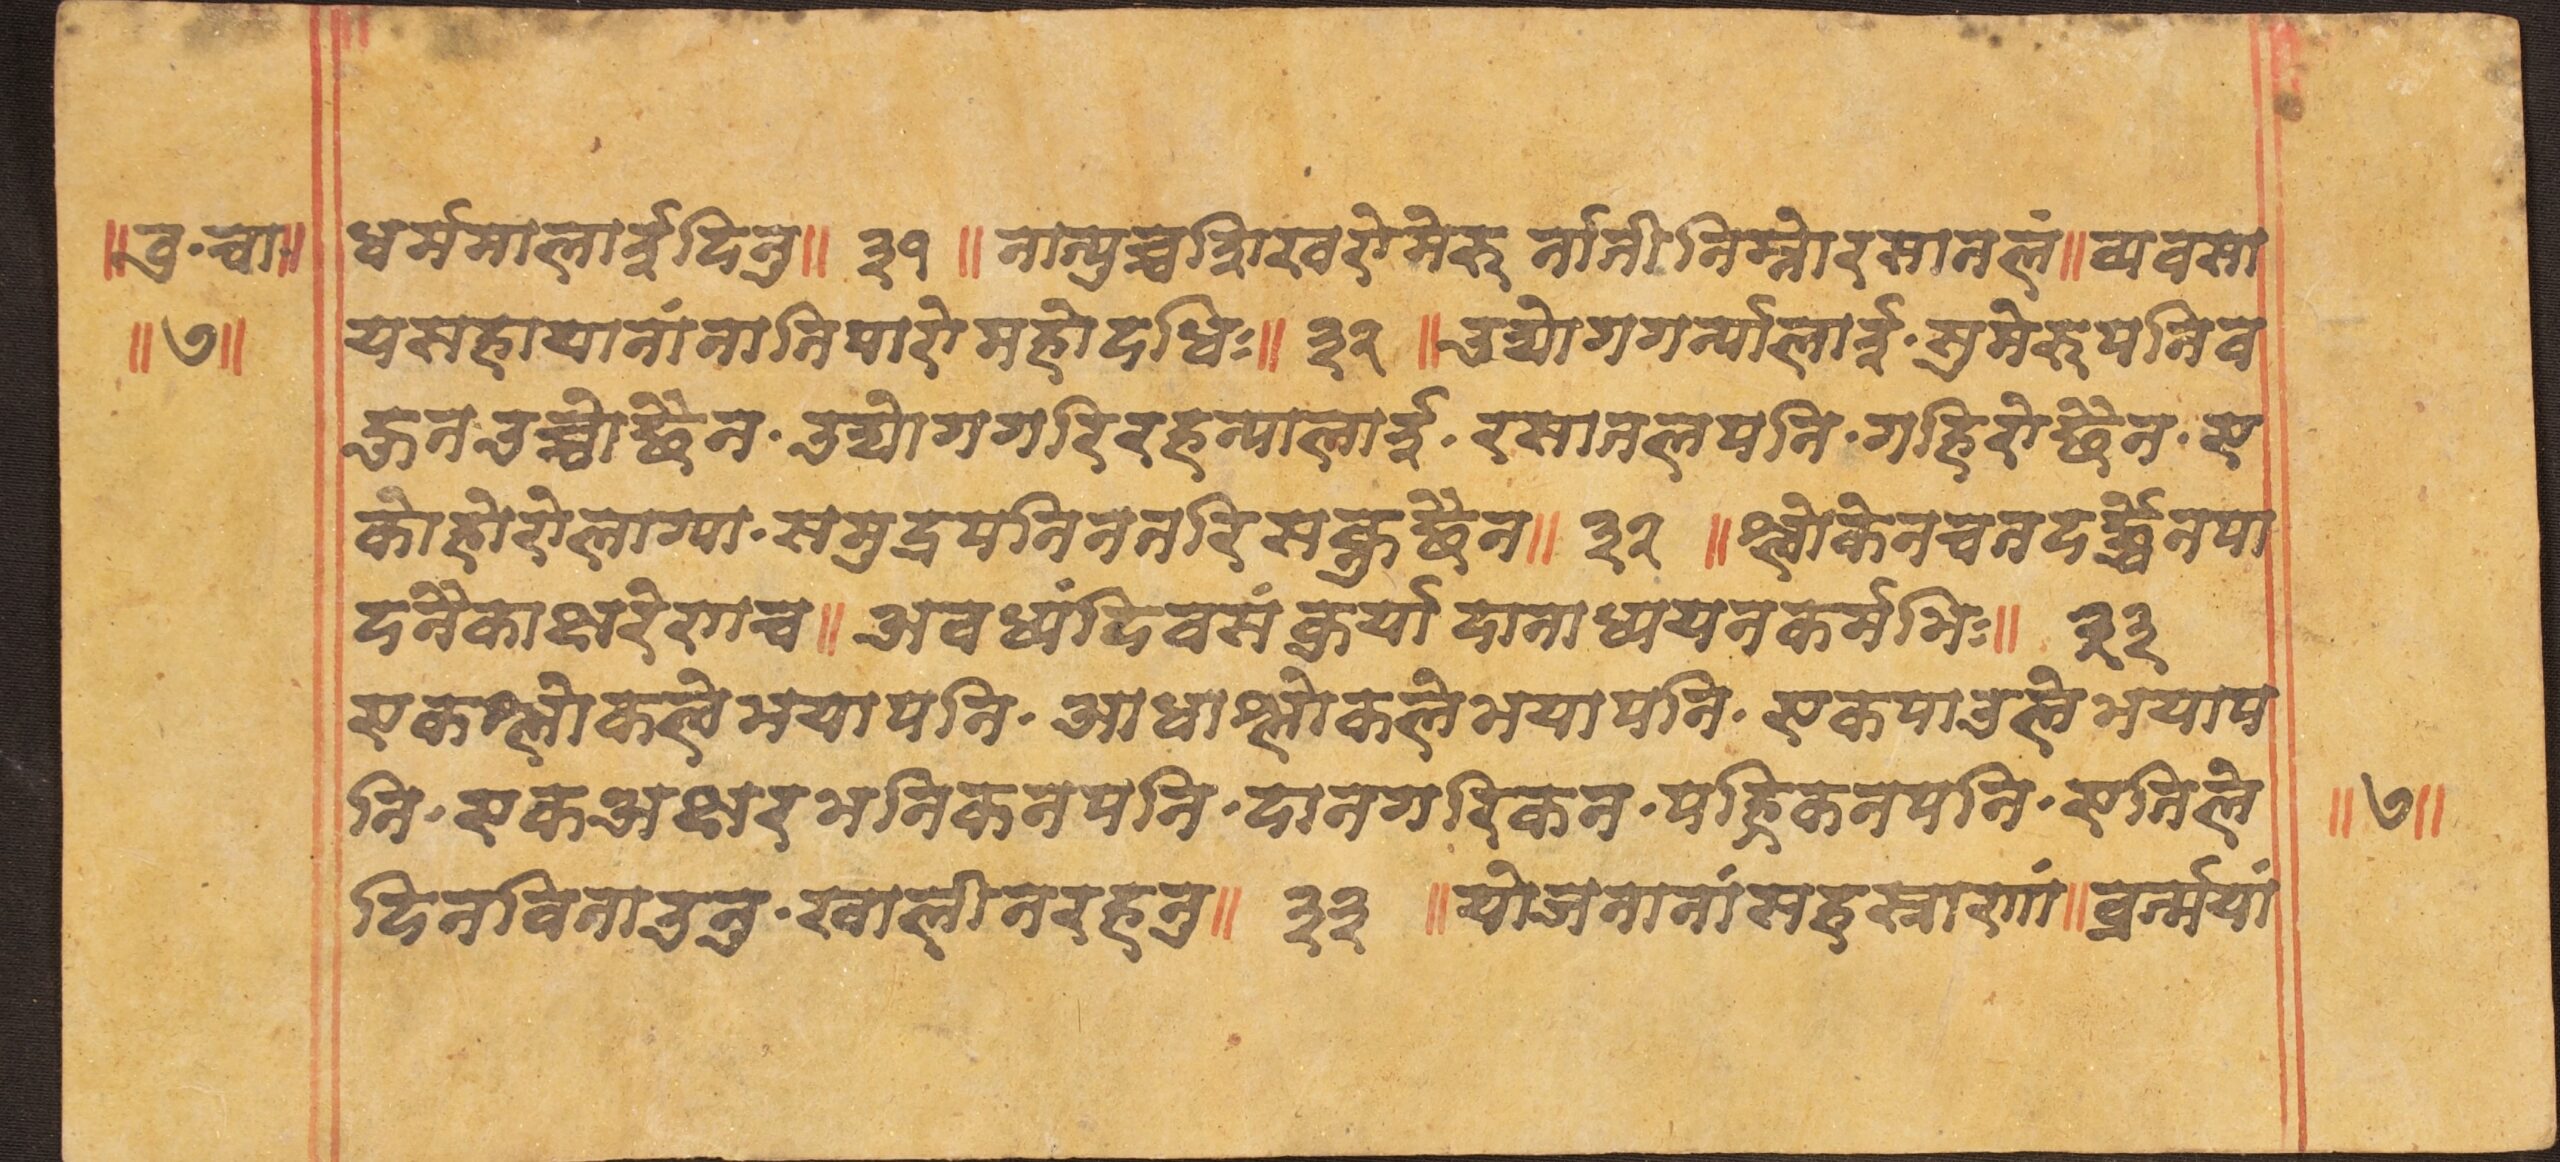 ॥वृ·चा॥ धर्ममालाई दिनु॥ ३१ ॥ नात्युच्चशिखरो मेरु र्नाती निम्नो रसातलं॥ व्यवसा
॥७॥ यसहायानां नातिपारो महोदधिः॥ ३२ ॥ उद्योग गर्न्यालाई· सुमेरू पनि व
हुत उच्चो छैन· उद्योग गरि रहन्यालाई· रसातल पनि· गहिरो छैन· ए
कोहोरो लाग्या· समुद्र पनि न तरि सक्नु छैन॥ ३२ ॥ श्लोकेन च तदर्द्धेन पा
दनैकाक्षरेण च॥ अवध्यं दिवसं कुर्या दानाध्ययनकर्मभिः॥ ३३
एक श्लोकले भया पनि· आधा श्लोकले भया पनि· एक पाउले भया प
नि· एक अक्षर भनिकन पनि· दान गरिकन· पढिकन पनि· एतिले
दिन विताउनु· खाली नरहनु॥ ३३ ॥ योजनानां सहस्राणां॥ व्रर्न्मयां
॥७॥